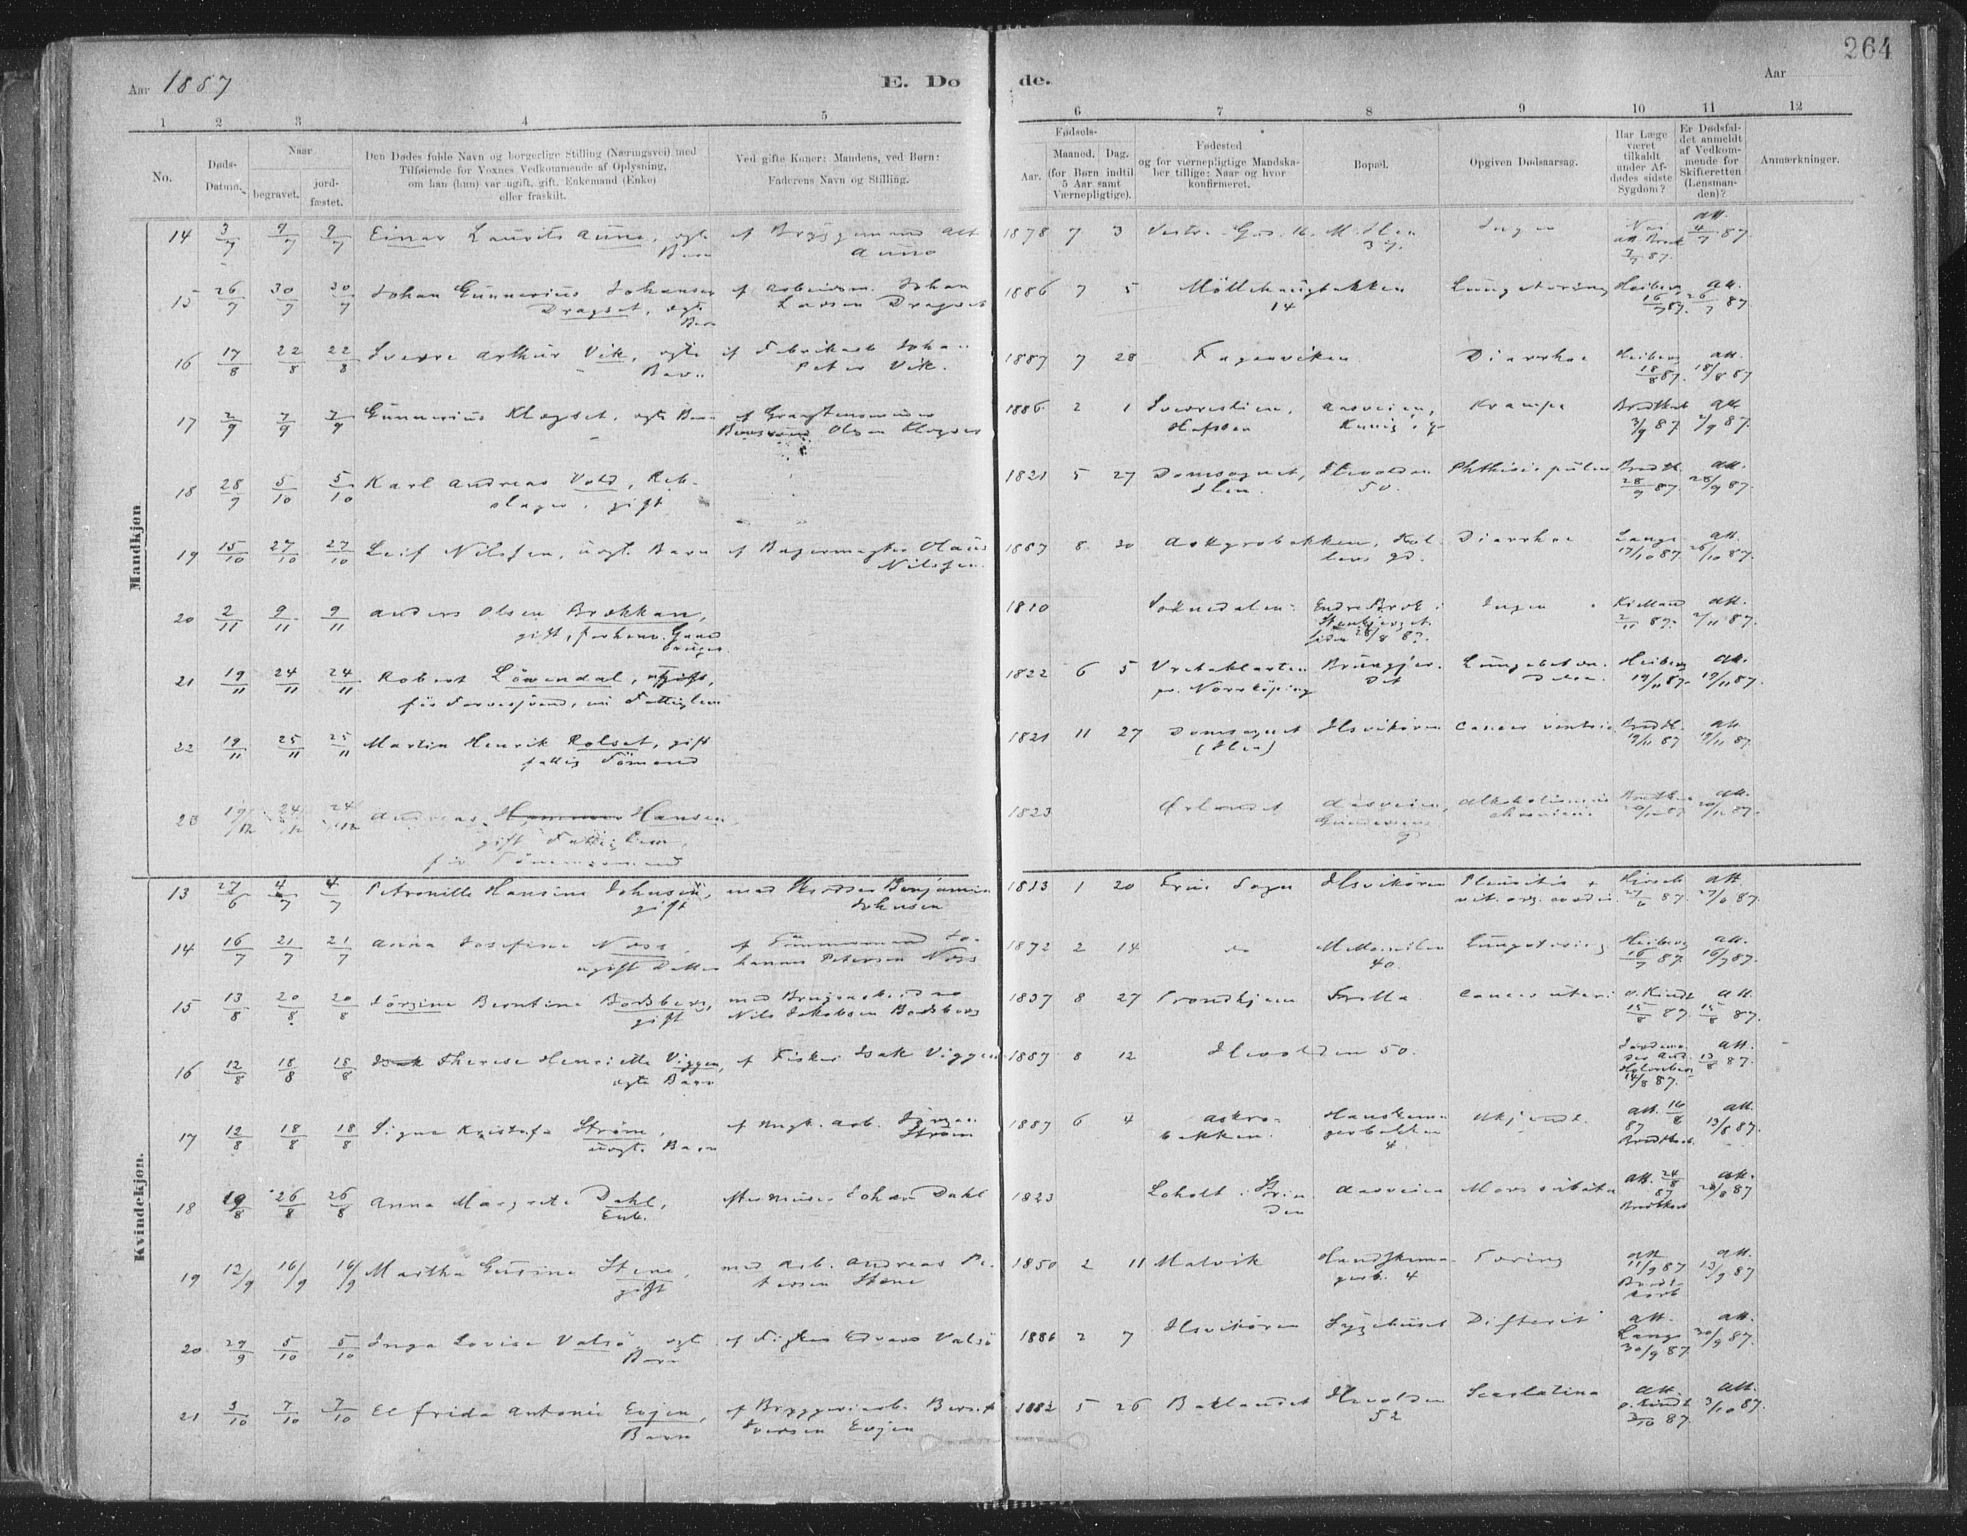 264
Aar 1887
E. Dø de.
Aar
1 2 3 4 5 6 7 8 9 10 11 12
No.
Døds-
Datum.
Naar
begravet.
jord-
fæstet.
Den Dødes fulde Navn og borgerlige Stilling (Næringsvei) med
Tilføiende for Voxnes Vedkommende af Oplysning,
om han (hun) var ugift, gift, Enkemand (Enke)
eller fraskilt.
Ved gifte Koner: Mandens, ved Børn:
Faderens Navn og Stilling.
Fødsels-
Aar.
Maaned. Dag.
(for Børn indtil
5 Aar samt
Værnepligtige).
Fødested
og for værnepligtige Mandska-
ber tillige: Naar og hvor
konfirmeret.
Bopæl.
Opgiven Dødsaarsag.
Har Læge
været
tilkaldt
under Af-
dødes sidste
Sygdom?
Er Dødsfal-
det anmeldt
af Vedkom-
mende for
Skifteretten
(Lensman-
den)?
Anmærkninger.
Mandkjøn
14 3/7 9/7 9/7 Einar Laurits Aune, ægte
Barn
af Bryggemand
Aune
1878 7 3 Vestre Gd. 16. M. Ilen
37.
Ingen
att.
4/7 87.
15 26/7 30/7 30/7 Johan Gunnerius Johansen
Dragset, ægte
Barn
af Arbeidsm. Johan
Larsen Dragset
1886 7 5 Möllehaugbakken
14
Lungetæring Heiberg
16/7 87.
att.
26/7 87
16 17/8 22/8 22/8 Sverre Arthur Vik, ægte
Barn
af Fabrikarb. Johan
Peter Vik.
1887 7 28 Fagerviken Diarrhoe Heiberg
18/8 87.
att.
18/8 87
17 2/9 7/9 7/9 Gunnerius Klogset, ægte Barn af
Olsen Klogset
1886 2 1 Sverreslien,
Aasveien,
Krampe
3/9 87.
att.
2/9 87.
18 28/9 5/10 5/10 Karl Andreas Vold, Reb-
slager, gift
1821 5 27 Domsognet,
Ilen.
Ilevolden
50.
Phthisis pulm. Bredtk.
28/9 87.
att.
28/9 87.
19 15/10 27/10 27/10 Leif Nilssen, uægt. Barn af Bagermester Olaus
Nilssen.
1887 8 20 Askgrobakken, Diarrhoe Lange
17/10 87.
att.
26/10 87.
20 2/11 9/11 9/11 Anders Olsen Brækkan,
gift, forhenv. Gaard
bruger.
1810 Soknedalen Ingen Kielland
2/11 87.
att.
2/11 87.
21 19/11 24/11 24/11 Robert Löwendal, ugift,
för Farvesvend, nu Fattiglem
1822 6 5 Vretaklosten
pr. Norrköping
Heiberg
19/11 87.
att.
19/11 87.
22 19/11 25/11 25/11 Martin Henrik Rolset, gift
fattig Tömand
1821 11 27 Domsognet
(Ilen)
Ilsvikören Cancer ventric. Bredtk.
19/11 87
att.
19/11 87.
23 19/12 24/12 24/12 Andreas Hansen,
gift Fattiglem,
1823 Ørlandet Aasveien, Alkoholismus
chronicus.
att.
Kvindekjøn.
13 27/6 4/7 4/7 Petronille Hansine Johnsen,
gift
med Benjamin
Johnsen
1813 1 20 Frue Sogn Ilsvikören Pleuritis +
vit. org. cordis. Hirsch
27/6 87.
att.
27/6 87.
14 16/7 21/7 21/7 Anna Josefine Næss,
ugift Datter
af Tömmermand Jo-
hannes Petersen Næss
1872 2 14 do Mellemilen
40.
Lungetæring Heiberg
16/7 87.
att.
16/7 87.
15 13/8 20/8 20/8 Jörgine Berntine Bordsberg,
gift
med Brugsarbeider
Nils Jakobsen Bordsberg
1837 8 27 Trondhjem Trolla Cancer uteri v. Kindt
15/8 87.
att.
15/8 87.
16 12/8 18/8 18/8 Therese Henriette Viggen,
ægte Barn
af Fisker Isak Viggen
1887 8 12 Ilevolden 50. Jordemo-
der
14/8 87.
att.
13/8 87.
17 12/8 18/8 18/8 Signe Kristofa Ström,
uægte Barn
af Jörgen
Ström
1887 6 4 Askro-
bakken.
4
Ukjendt. att. 16/8
87
Bredtkorb.
att.
13/8 87.
18 19/8 26/8 26/8 Anna Margrete Dahl,
Enk.
efter Murer Johan Dahl
1823 Loholt, Strin
den
Aasveien Mors subita att. 24/8
87
Bredtkorb
att.
24/8 87
19 12/9 16/9 16/9 Martha Gurine Stene,
gift
med Arb. Andreas Pe-
tersen Stene
1850 2 11 Malvik Handskema-
gerb. 4
Tæring att.
11/9 87
Bredt-
korb
att.
13/9 87
20 29/9 5/10 5/10 Inga Lovise Valsö, ægt
Barn
af Fisker Edvard Valsö
1886 2 7 Ilsvikören Sygehuset Difterit att.
Lange
30/9 87.
att.
30/9 87.
21 3/10 7/10 7/10 Elfrida Antonie Evjen,
Barn
af Bryggeriarb. Bernt
Iversen Evjen
1882 5 26 Baklandet Ilevolden
52
Scarlatina att.
v. Kindt
3/10 87.
att.
3/10 87.